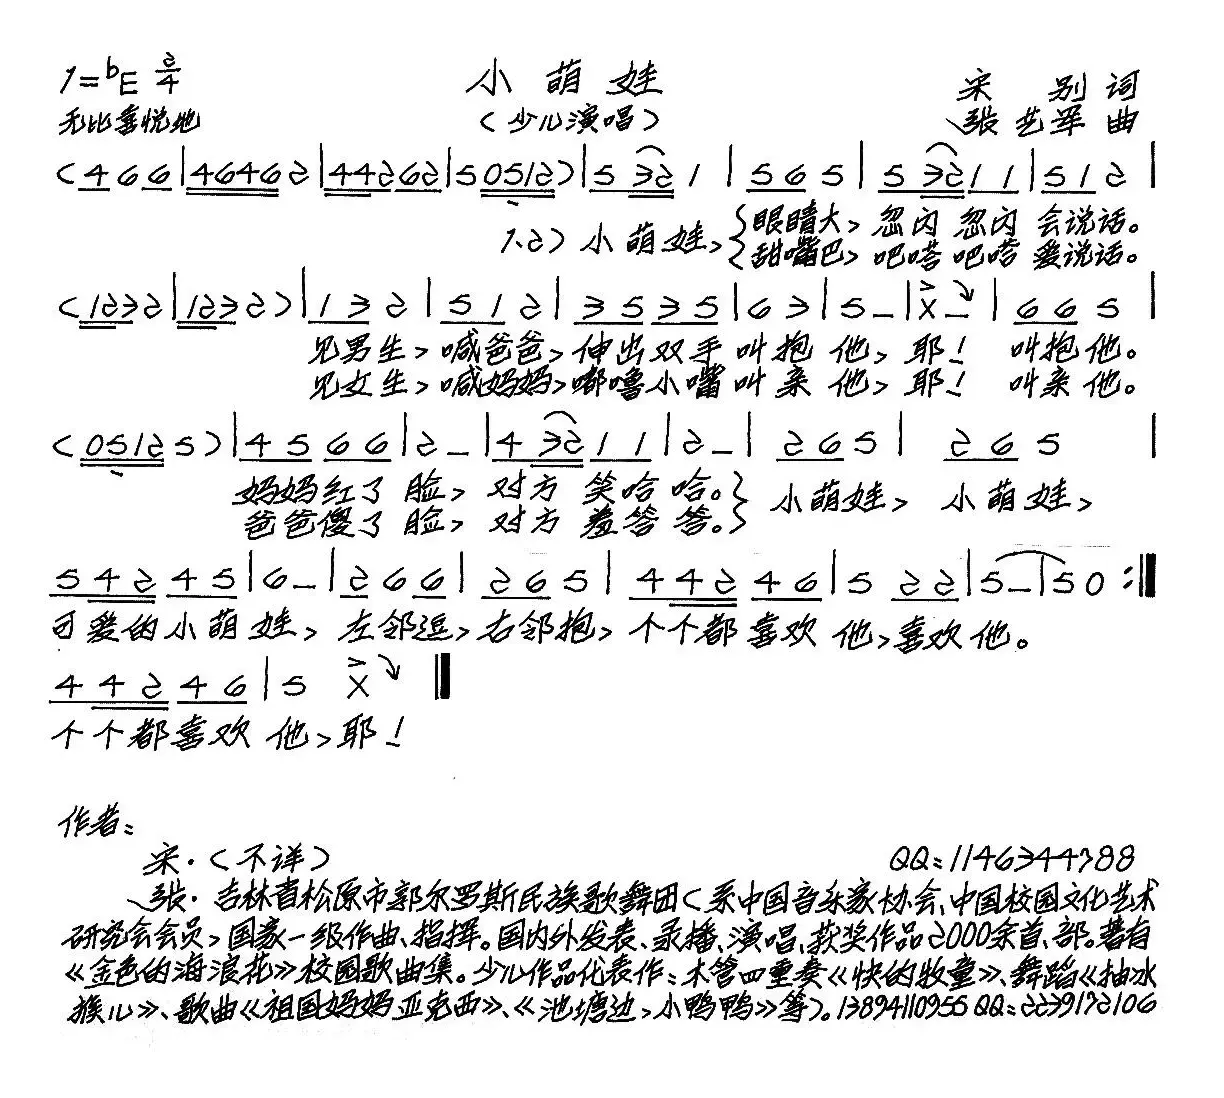 1=bE 2/4
小萌娃
宋别 词
无比喜悦地
（少儿演唱）
张艺军 曲
（4 6 6 | 4 6 4 6 2 | 4 4 2 6 2 | 5 0 5 1 2）| 5 3 2 1 | 5 6 5 | 5 3 2 1 1 | 5 1 2 |
眼睛大，忽闪 忽闪 会说话。
1.2）小萌娃，
甜嘴巴，吧嗒 吧嗒 爱说话。
（1 2 3 2 | 1 2 3 2）| 1 3 2 | 5 1 2 | 3 5 3 5 | 6 3 | 5 – | X – | 6 6 5 |
见男生，喊爸爸，伸出双手叫抱他，耶！ 叫抱他。
见女生，喊妈妈，嘟噜小嘴叫亲他，耶！ 叫亲他。
（0 5 1 2 5）| 4 5 6 6 | 2 – | 4 3 2 1 1 | 2 – | 2 6 5 | 2 6 5 |
妈妈红了脸，对方笑哈哈。
小萌娃，小萌娃，
爸爸傻了脸，对方羞答答。
5 4 2 4 5 | 6 – | 2 6 6 | 2 6 5 | 4 4 2 4 6 | 5 2 2 | 5 – | 5 0 :‖
可爱的小萌娃，左邻逗，右邻抱，个个都喜欢他，喜欢他。
4 4 2 4 6 | 5 X ‖
个个都喜欢他，耶！
作者：
宋·（不详） QQ：1146344788
张·吉林省松原市郭尔罗斯民族歌舞团（系中国音乐家协会、中国校园文化艺术
研究会会员，国家一级作曲、指挥。国内外发表、录播、演唱、获奖作品2000余首、部。著有
《金色的海浪花》校园歌曲集。少儿作品代表作：木管四重奏《快的牧童》、舞蹈《抽冰
猴儿》、歌曲《祖国妈妈亚克西》、《池塘边，小鸭鸭》等）。13894110955 QQ：2239172106